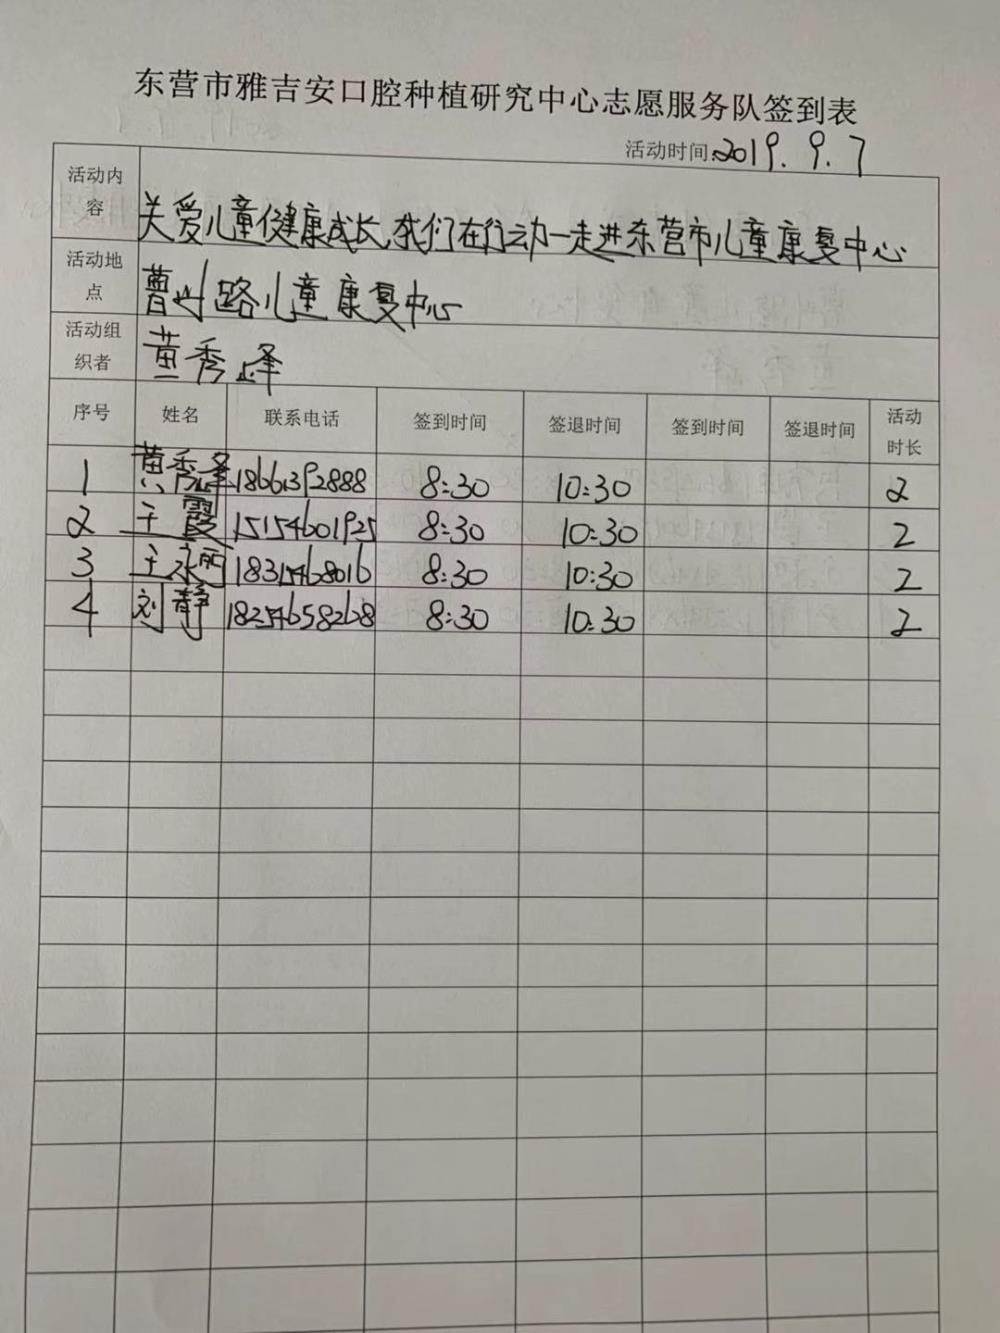 东营市雅吉安口腔种植研究中心志愿服务队签到表
活动时间:2019.9.7
活动内容 关爱儿童健康成长,我们在行动—走进东营市儿童康复中心
活动地点 曹州路儿童康复中心
活动组织者 黄秀峰
序号 姓名 联系电话 签到时间 签退时间 签到时间 签退时间 活动时长
1 黄秀峰 18661392888 8:30 10:30 2
2 王霞 15154601925 8:30 10:30 2
3 王永丽 18315468016 8:30 10:30 2
4 刘静 18254658268 8:30 10:30 2